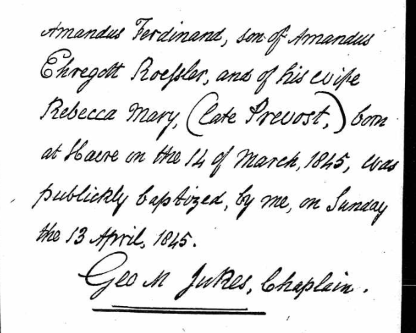 Amandus Ferdinand, son of Amandus
Ehregott Roessler, and of his wife
Rebecca Mary, (late Prevost,) born
at Havre on the 14 of March, 1845, was
publickly baptized, by me, on Sunday
the 13 April, 1845.
Geo M Jukes, Chaplain.